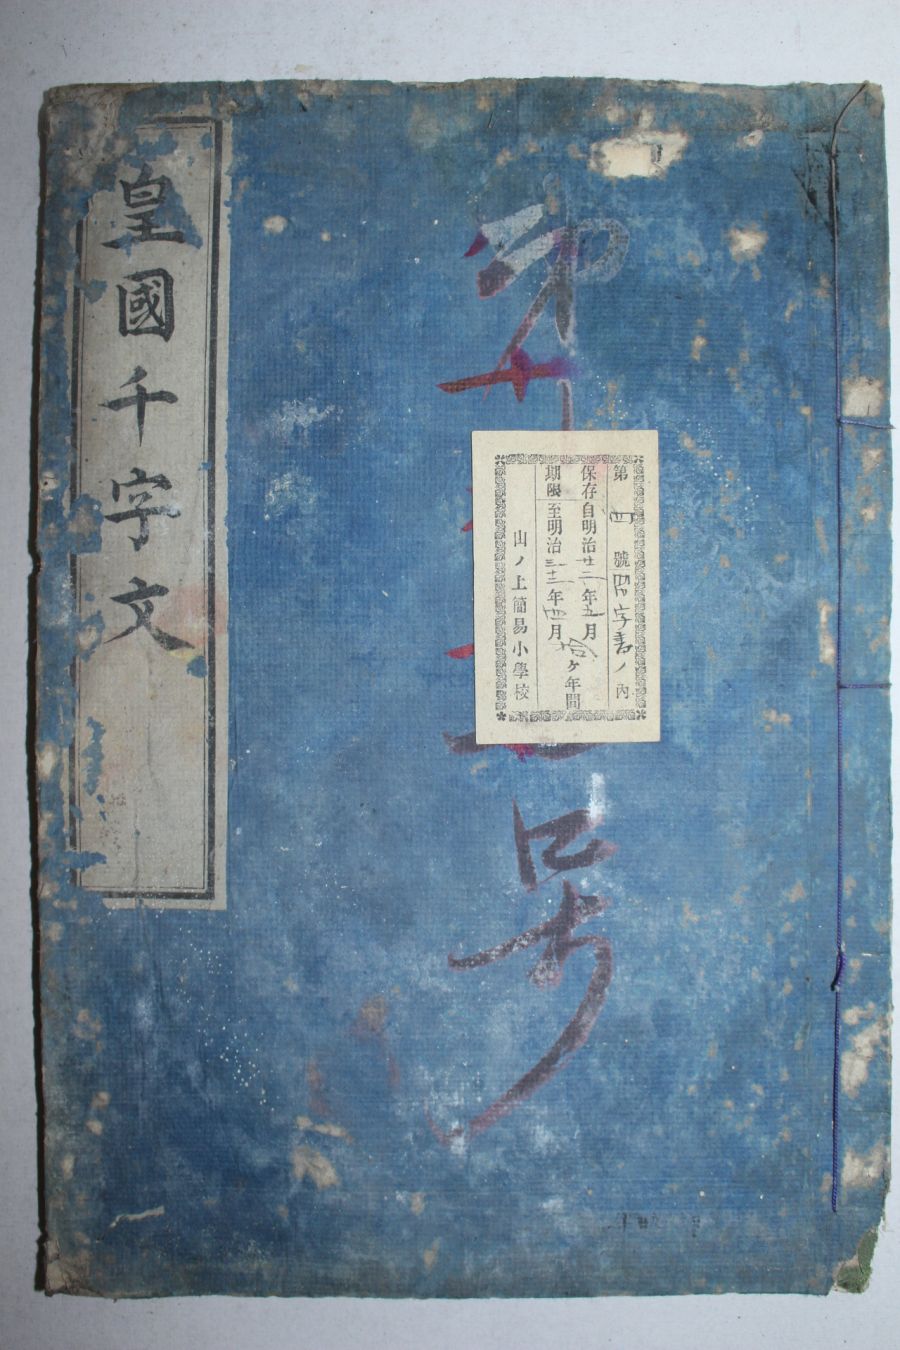 皇國千字文
第
號
第四號 字書ノ內
保存自明治廿二年五月
期限至明治三十二年四月
ヶ年間
山ノ上簡易小學校